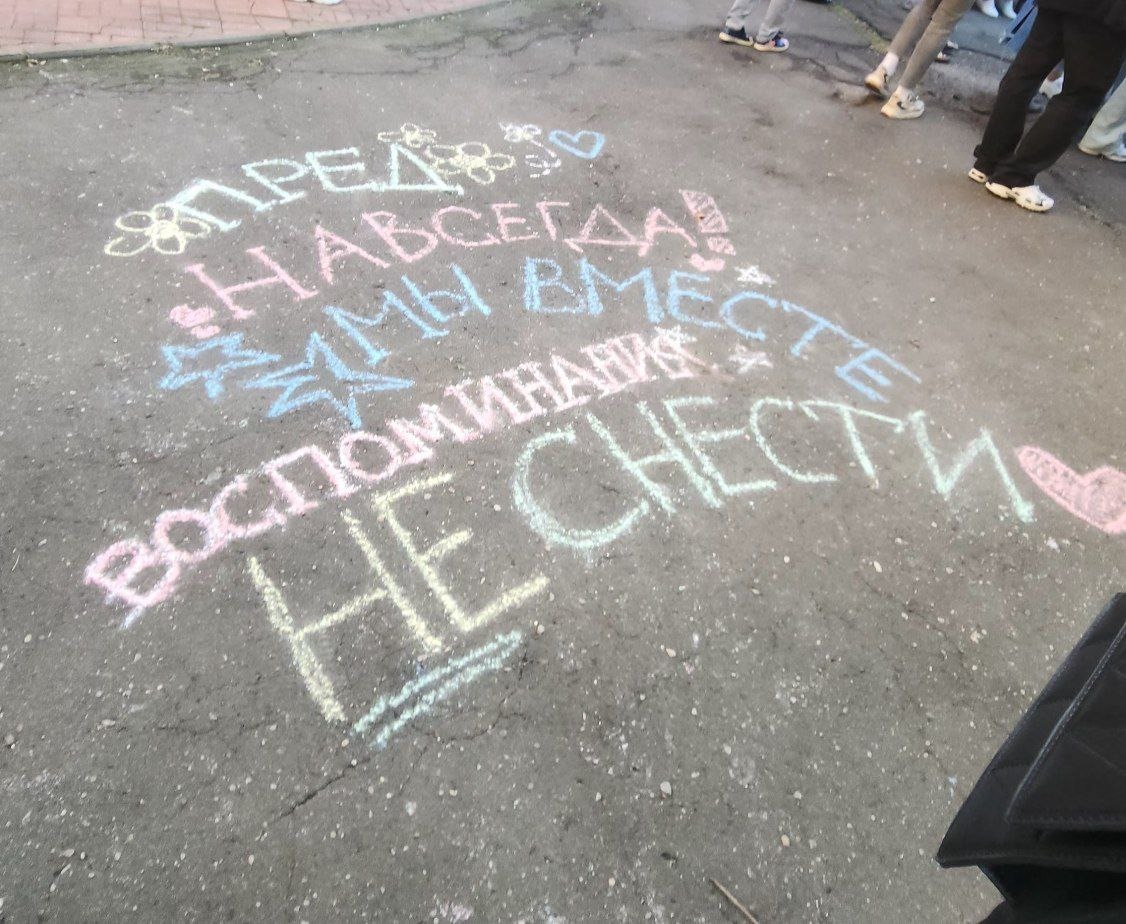 ПРЕД
НАВСЕГДА!
МЫ ВМЕСТЕ
ВОСПОМИНАНИЯ
НЕ СНЕСТИ